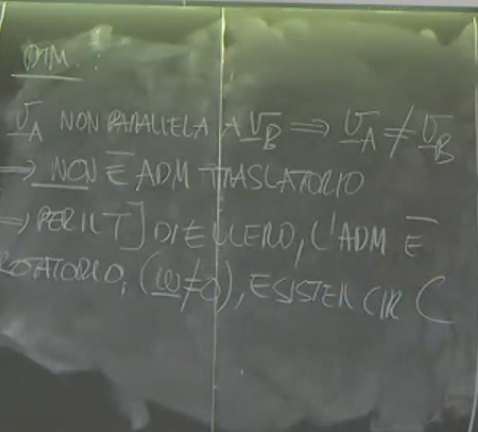 DIM.:
v_A NON PARALLELA A v_B ⟹ v_A ≠ v_B
⟹ NON È ADM TRASLATORIO
⟹ PER IL T] DI EULERO, L'ADM È
ROTATORIO, (ω≠0), ESISTE IL CIR C